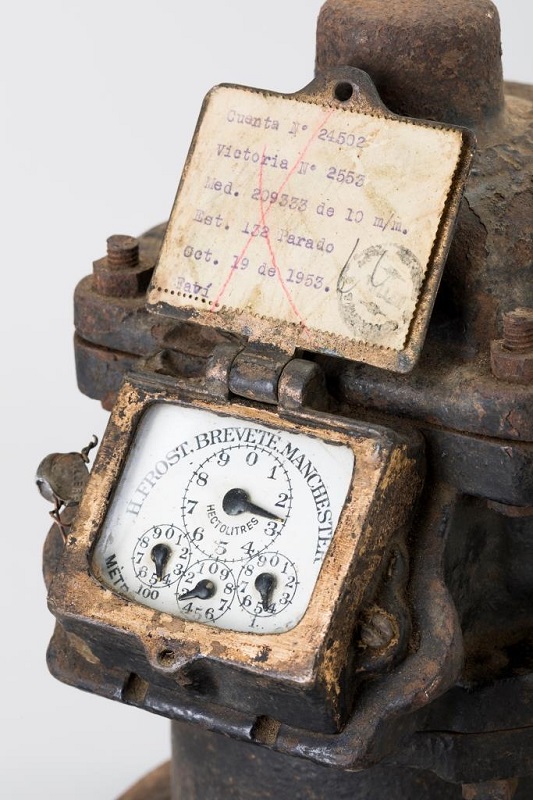 Cuenta Nº 24502
Victoria Nº 2553
Med. 209333 de 10 m/m.
Est. 132 Parado
Oct. 19 de 1953.
Favi
H.FROST. BREVETE. MANCHESTER
9 0 1
8 2
7 3
6 5 4
HECTOLITRES
8 9 0 1 2
7 3
6 5 4
2 1 0 9
3 8
4 5 6 7
8 9 0 1 2
7 3
6 5 4
MÈT.
100
10
1